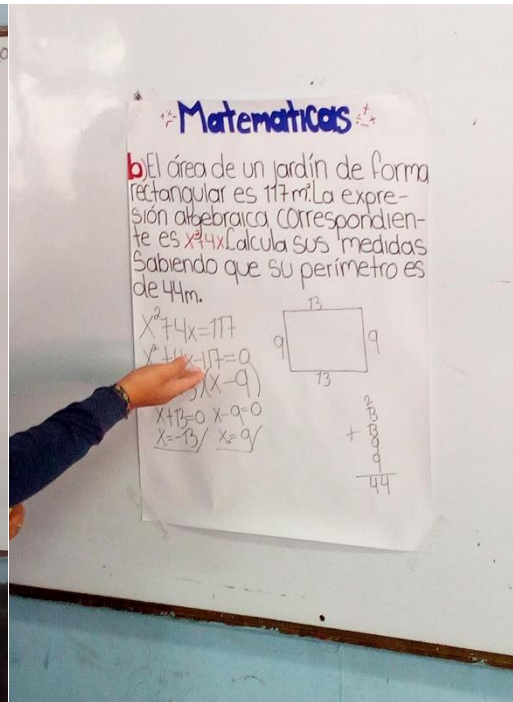 Matematicas
b) El área de un jardín de forma
rectangular es 117m². La expre-
sión algebraica correspondien-
te es x²+4x. Calcula sus medidas
Sabiendo que su perímetro es
de 44m.
x²+4x=117
x²+4x-117=0
(x-9)
x+13=0 x-9=0
x=-13/ x=9/
13
9 9
13
2
13
+ 13
9
9
44